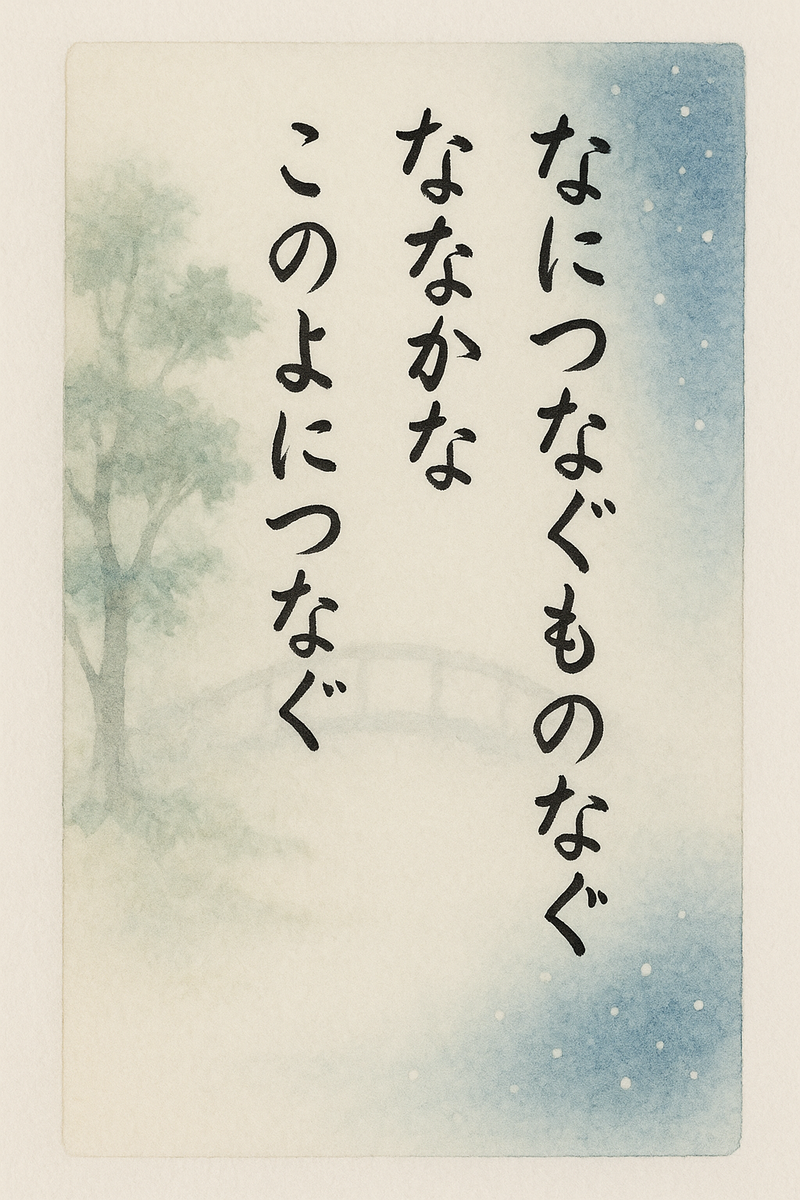 なにつなぐものなぐ
ななかな
このよにつなぐ